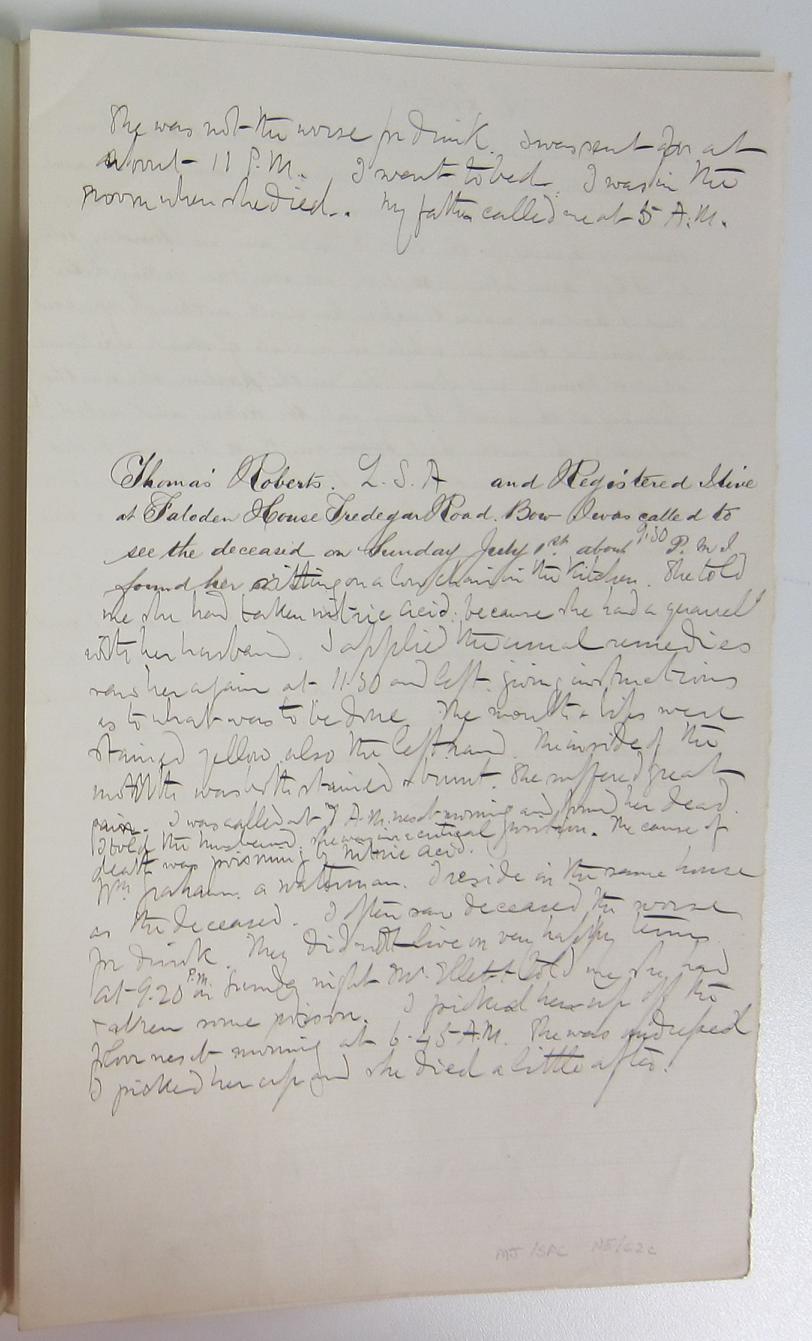 She was not the worse for drink. I was sent for at
about 11 P.M. I went to bed. I was in the
room when she died. My father called me at 5 A.M.
Thomas Roberts. L.S.A and Registered I live
at Faloden House Tredegar Road. Bow I was called to
see the deceased on Sunday July 1st about 9.30 P.M I
found her sitting on a low chair in the kitchen. She told
me she had taken nitric acid because she had a quarrel
with her husband. I applied the usual remedies
saw her again at 11.30 and left giving instructions
as to what was to be done. The mouth & lips were
stained yellow also the left hand. The inside of the
mouth was both stained & burnt. She suffered great
pain. I was called at 7 A.M. next morning and found her dead.
I told the husband she was in a critical position. The cause of
death was poisoning by Nitric Acid.
Wm Graham a waterman. I reside in the same house
as the deceased. I often saw deceased the worse
for drink. They did not live on very happy terms.
at 9.20 P.M. on Sunday night Mr told me she had
taken some poison. I picked her up off the
floor next morning at 6.45 A.M. She was undressed
I picked her up and she died a little after.
MJ/SPC NE/